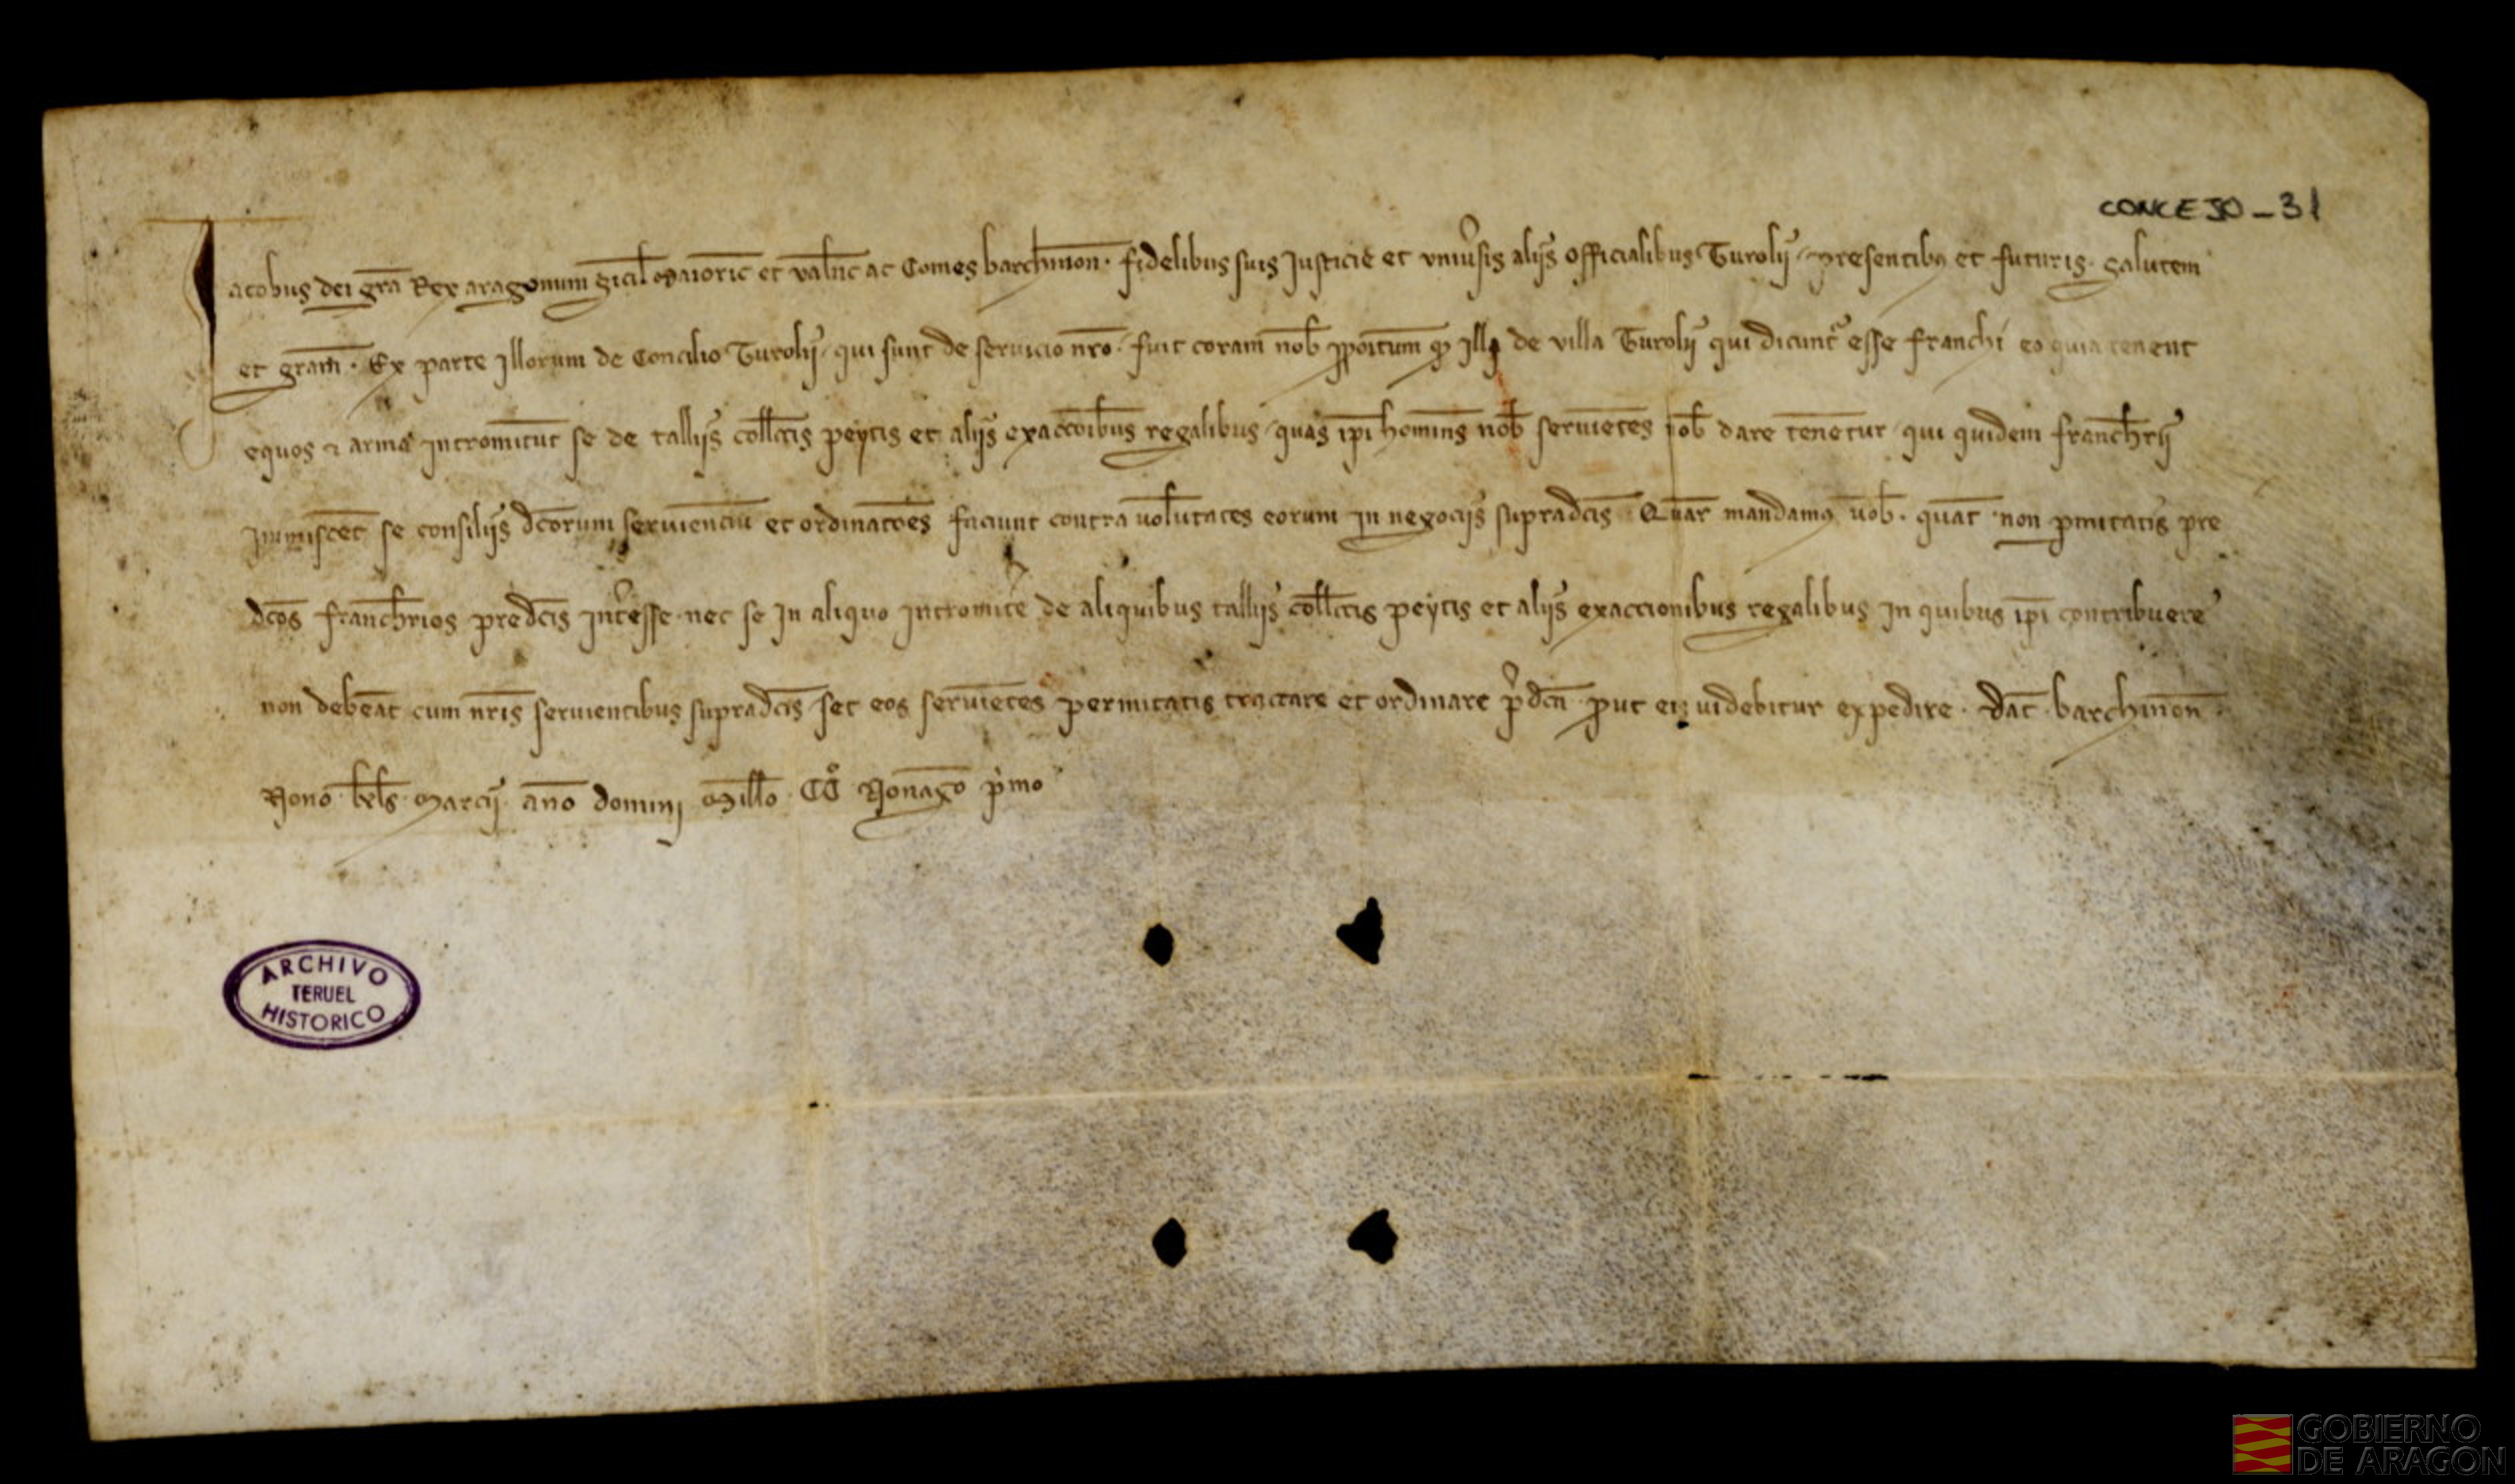 CONCEJO - 31
Iacobus dei grã Rex aragonum Sicil Maioric̃ et valñc ac Comes barchinon̄. fidelibus suis Justicie et vniũsis alijs officialibus Turolij presentibꝯ et futuris. Salutem
et gram̄. Ex parte illorum de Concilio Turolij qui sunt de seruicio nr̄o. fuit coram nob̄ ꝓpoītum qđ illi de villa Turolij qui dicunt̃ esse franchi eo quia tenent
equos ⁊ arma intromītut se de tallijs coll̄ctis peytis et alijs exacc̄oībus regalibus quas ip̄i homin̄s nob̄ seruīetes dare tenētur qui quidem franch̄rij
jmmiscēt se consilijs dc̄orum seruienciū et ordinac̄oēs faciunt contra volūtates eorum in negocijs supradc̄is. Quar̄ mandamꝯ vob̄. quat̄ non ꝑmitatis pre
dc̄os franch̄rios predc̄is int̃esse nec se in aliquo intromit̃e de aliquibus tallijs coll̄ctis peytis et alijs exaccionibus regalibus in quibus ip̄i contribuere
non debēāt cum nr̄is seruientibus supradc̄is set eos seruīetes permitatis tractare et ordinare p̃dc̄ā ꝓut eis uidebitur expedire. Dat̄ barchinon̄.
Nono kl̄s marcij anō domini Mill̄o CC° Nonaḡo p̃mo
ARCHIVO
TERUEL
HISTORICO
GOBIERNO
DE ARAGON